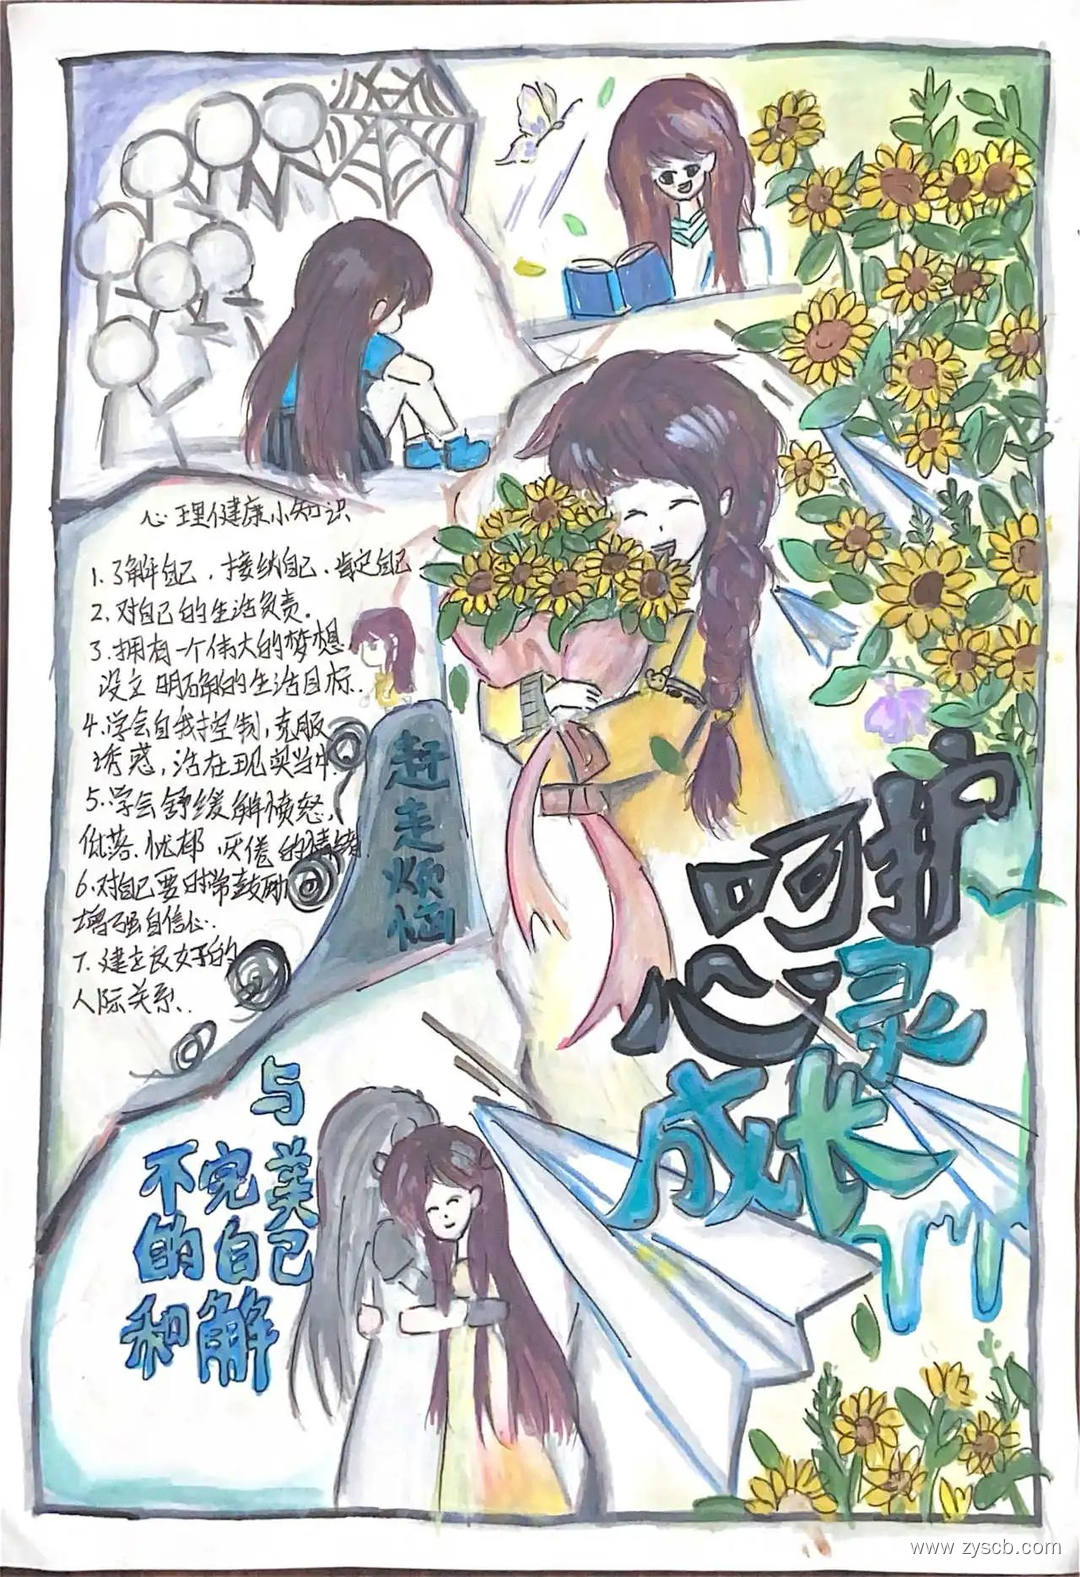 心理健康小知识
1.了解自己、接纳自己、肯定自己
2.对自己的生活负责.
3.拥有一个伟大的梦想
设立明确的生活目标..
4.学会自我控制,克服
诱惑,活在现实当中
5.学会舒缓解愤怒,
低落、忧郁 厌倦的情绪
6.对自己要时常鼓励
增强自信心.
7.建立良好的
人际关系..
赶走烦恼
呵护
心灵
成长
与
不完美
的自己
和解
www.zyscb.com